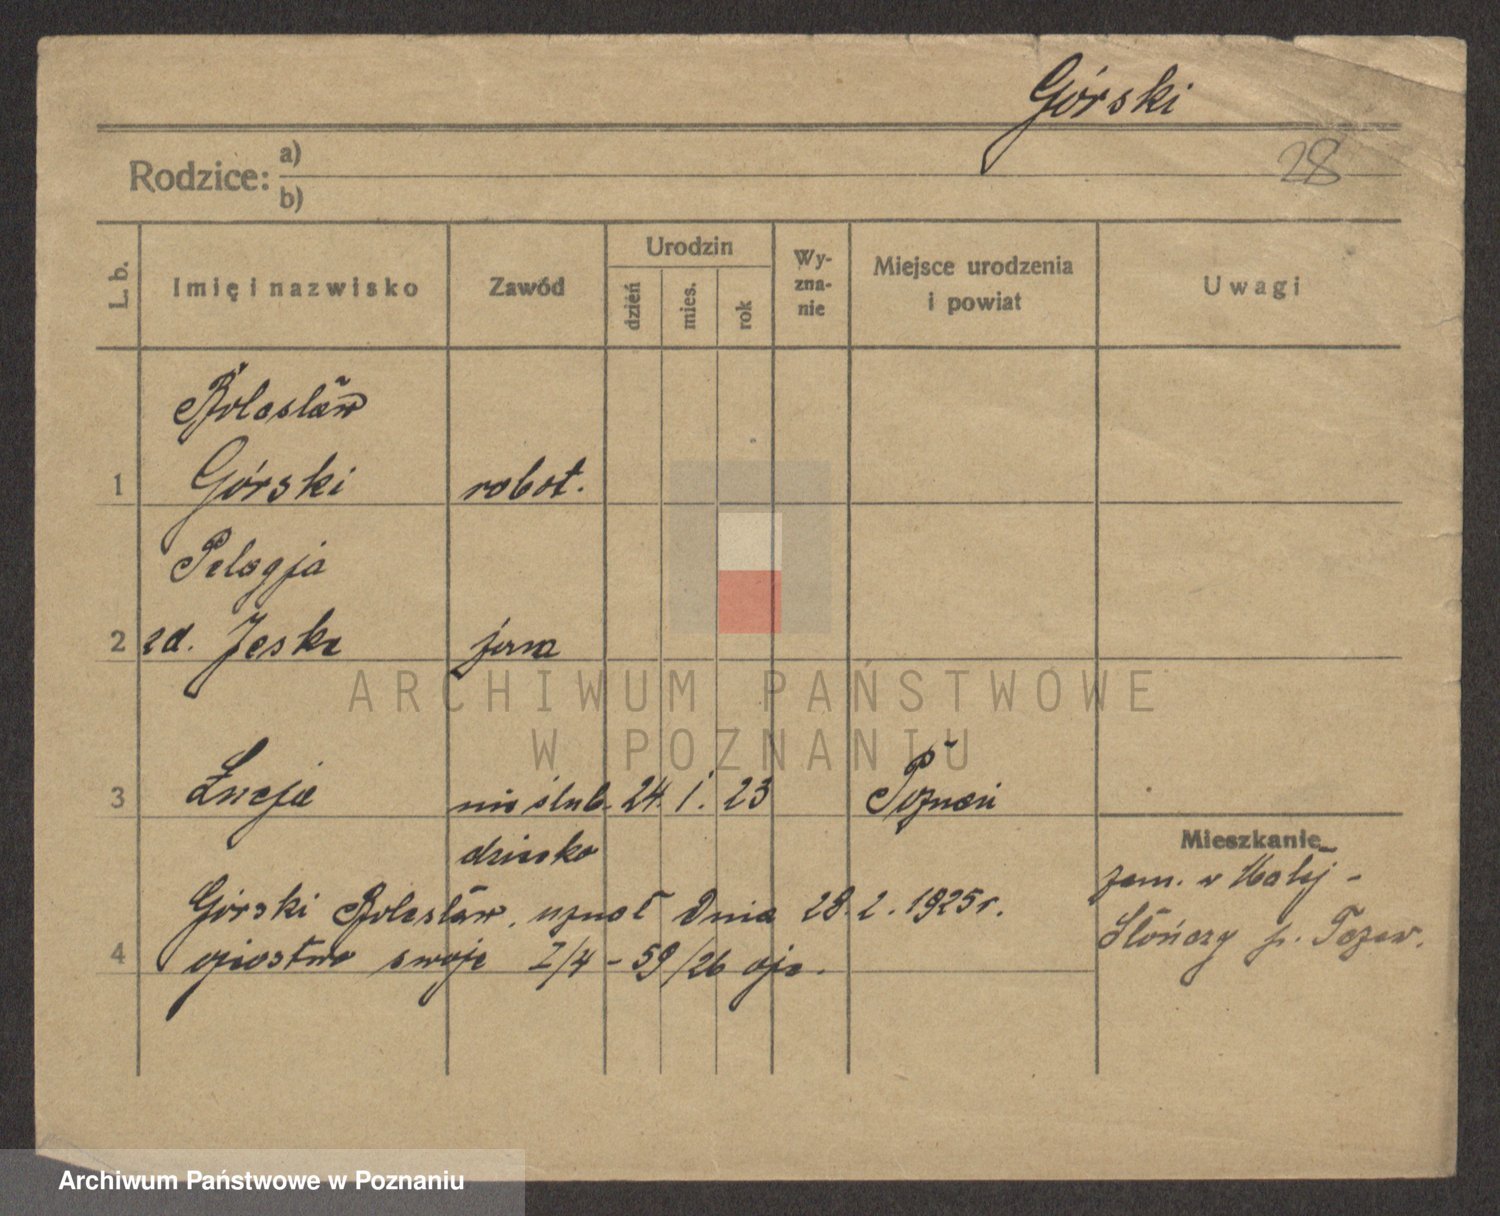 Górski
28
Rodzice: a)
b)
L. b.
Imię i nazwisko
Zawód
Urodzin
dzień
mies.
rok
Wy-
zna-
nie
Miejsce urodzenia
i powiat
Uwagi
Bolesław
1 Górski robot.
Pelagja
2 zd. Jeske żona
3 Łucja nieślub. 24. 1. 23 Poznań
dziecko
Mieszkanie
zam. w Małej-
Słończy p. Tczew.
Górski Bolesław. uznał dnia 28. 2. 1925 r.
4 ojcostwo swoje Z/4 - 59/26 ojc.
ARCHIWUM PAŃSTWOWE
W POZNANIU
Archiwum Państwowe w Poznaniu